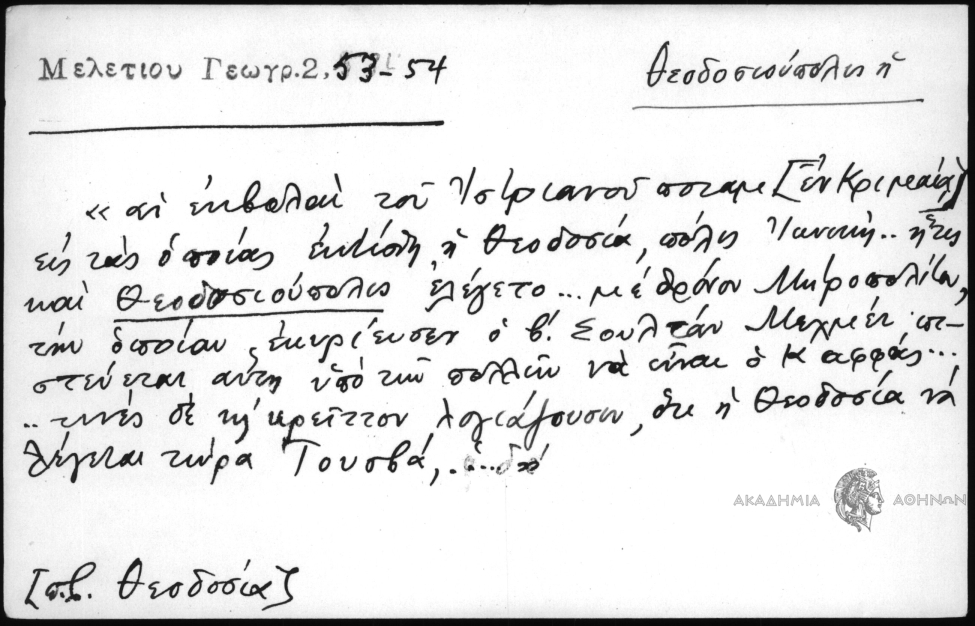 Μελετίου Γεωγρ.2, 53-54
Θεοδοσιούπολις ἡ
« αἱ ἐκβολαὶ τοῦ Ἰστριανοῦ ποταμ. [ἐν Κριμαίᾳ]
εἰς τὰς ὁποίας ἐκτίσθη ἡ Θεοδοσία, πόλις .. ἥτις
καὶ Θεοδοσιούπολις ἐλέγετο... μὲ θρόνον Μητροπολίτου,
τὴν ὁποίαν ἐκυρίευσεν ὁ β΄. Σουλτάν Μεχμέτ, πι-
στεύεται αὕτη ὑπὸ τῶν πολλῶν νὰ εἶναι ὁ Καφφάς...
.. τινὲς δὲ κρεῖττον λογιάζουσιν, ὅτι ἡ Θεοδοσία νὰ
λέγεται τώρα Τουσβά,
ΑΚΑΔΗΜΙΑ ΑΘΗΝΩΝ
[π.β. Θεοδοσία]